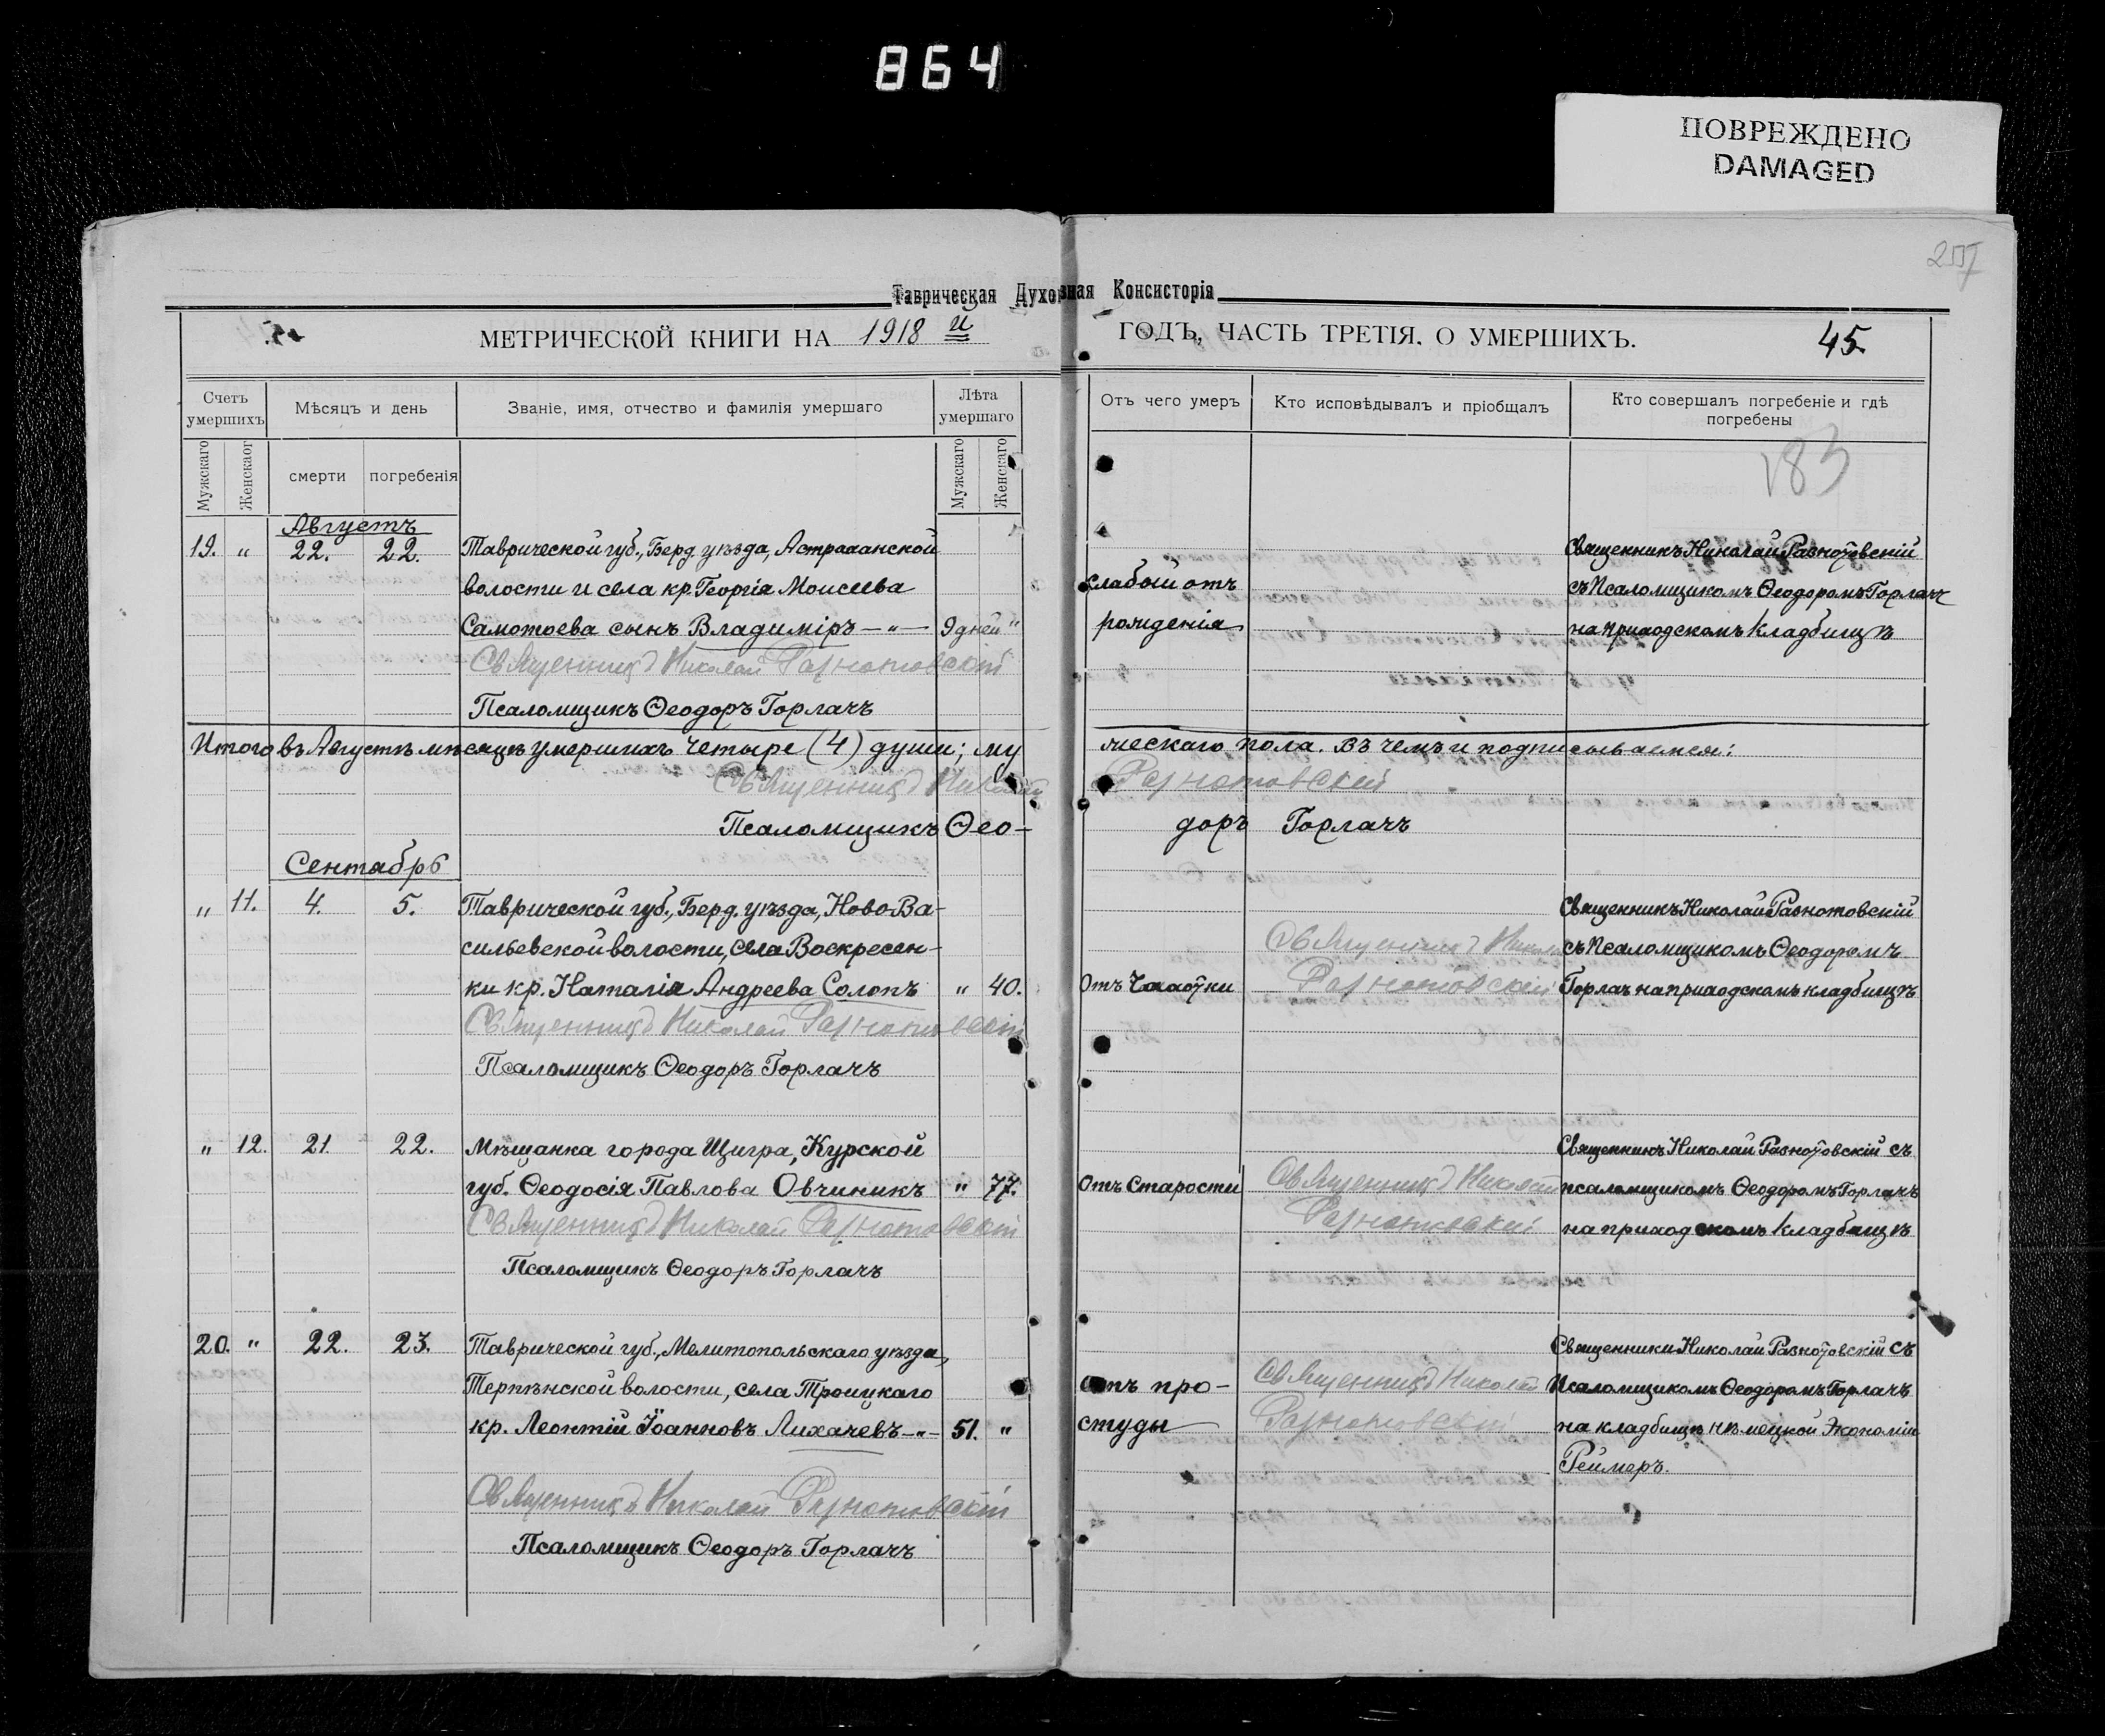 864
ПОВРЕЖДЕНО
DAMAGED
Таврическая Духовная Консисторія
МЕТРИЧЕСКОЙ КНИГИ НА 1918 й ГОДЪ, ЧАСТЬ ТРЕТІЯ. О УМЕРШИХЪ. 45.
Счетъ умершихъ
Мѣсяцъ и день
Званіе, имя, отчество и фамилія умершаго
Лѣта умершаго
Отъ чего умеръ
Кто исповѣдывалъ и пріобщалъ
Кто совершалъ погребеніе и гдѣ погребены
Мужскаго
Женскаго
смерти
погребенія
Мужскаго
Женскаго
183
Августъ
19. " 22. 22. Таврической губ., Берд. уѣзда, Астраханской
волости и села кр. Георгія Моисеева
Самотоева сынъ Владиміръ —"— 9 дней "
Слабый отъ
рожденія
Священникъ Николай Разнотовскій
съ Псаломщикомъ Ѳеодоромъ Горлачъ
на приходскомъ кладбищѣ
Священникъ Николай Разнотовскій
Псаломщикъ Ѳеодоръ Горлачъ
Итого въ Августѣ мѣсяцѣ умершихъ четыре (4) души; мужескаго пола. Въ чемъ и подписываемся:
Священникъ Николай Разнотовскій
Псаломщикъ Ѳеодоръ Горлачъ
Сентябрь
" 11. 4. 5. Таврической губ., Берд. уѣзда, Ново-Ва-
сильевской волости, села Воскресен-
ки кр. Наталія Андреева Солопъ " 40.
Отъ Чахотки
Священникъ Николай
Разнотовскій
Священникъ Николай Разнотовскій
съ Псаломщикомъ Ѳеодоромъ
Горлачъ на приходскомъ кладбищѣ
Священникъ Николай Разнотовскій
Псаломщикъ Ѳеодоръ Горлачъ
" 12. 21. 22. Мѣщанка города Щигра, Курской
губ. Ѳеодосія Павлова Овчиникъ " 77.
Отъ Старости
Священникъ Николай
Разнотовскій
Священникъ Николай Разнотовскій съ
псаломщикомъ Ѳеодоромъ Горлачъ
на приходскомъ кладбищѣ
Священникъ Николай Разнотовскій
Псаломщикъ Ѳеодоръ Горлачъ
20. " 22. 23. Таврической губ., Мелитопольскаго уѣзда,
Терпѣнской волости, села Троицкаго
кр. Леонтій Іоанновъ Лихачевъ —"— 51. "
Отъ про-
студы
Священникъ Николай
Разнотовскій
Священники Николай Разнотовскій съ
Псаломщикомъ Ѳеодоромъ Горлачъ
на кладбищѣ нѣмецкой Экономіи
Реймеръ.
Священникъ Николай Разнотовскій
Псаломщикъ Ѳеодоръ Горлачъ